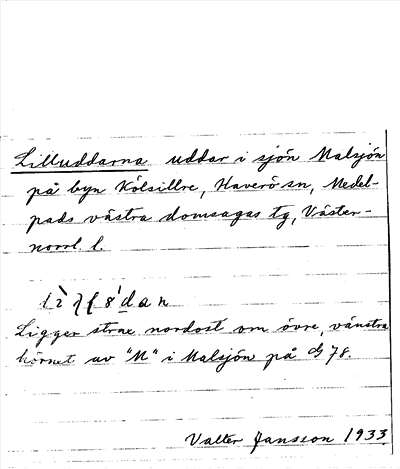 Lilluddarna uddar i sjön Malsjön
på byn Kölsillre, Haverö sn, Medel-
pads västra domsagas tg, Väster-
norrl. l.
Ligger strax nordost om övre, vänstra
hörnet av "M" i Malsjön på dg 78.
Valter Jansson 1933